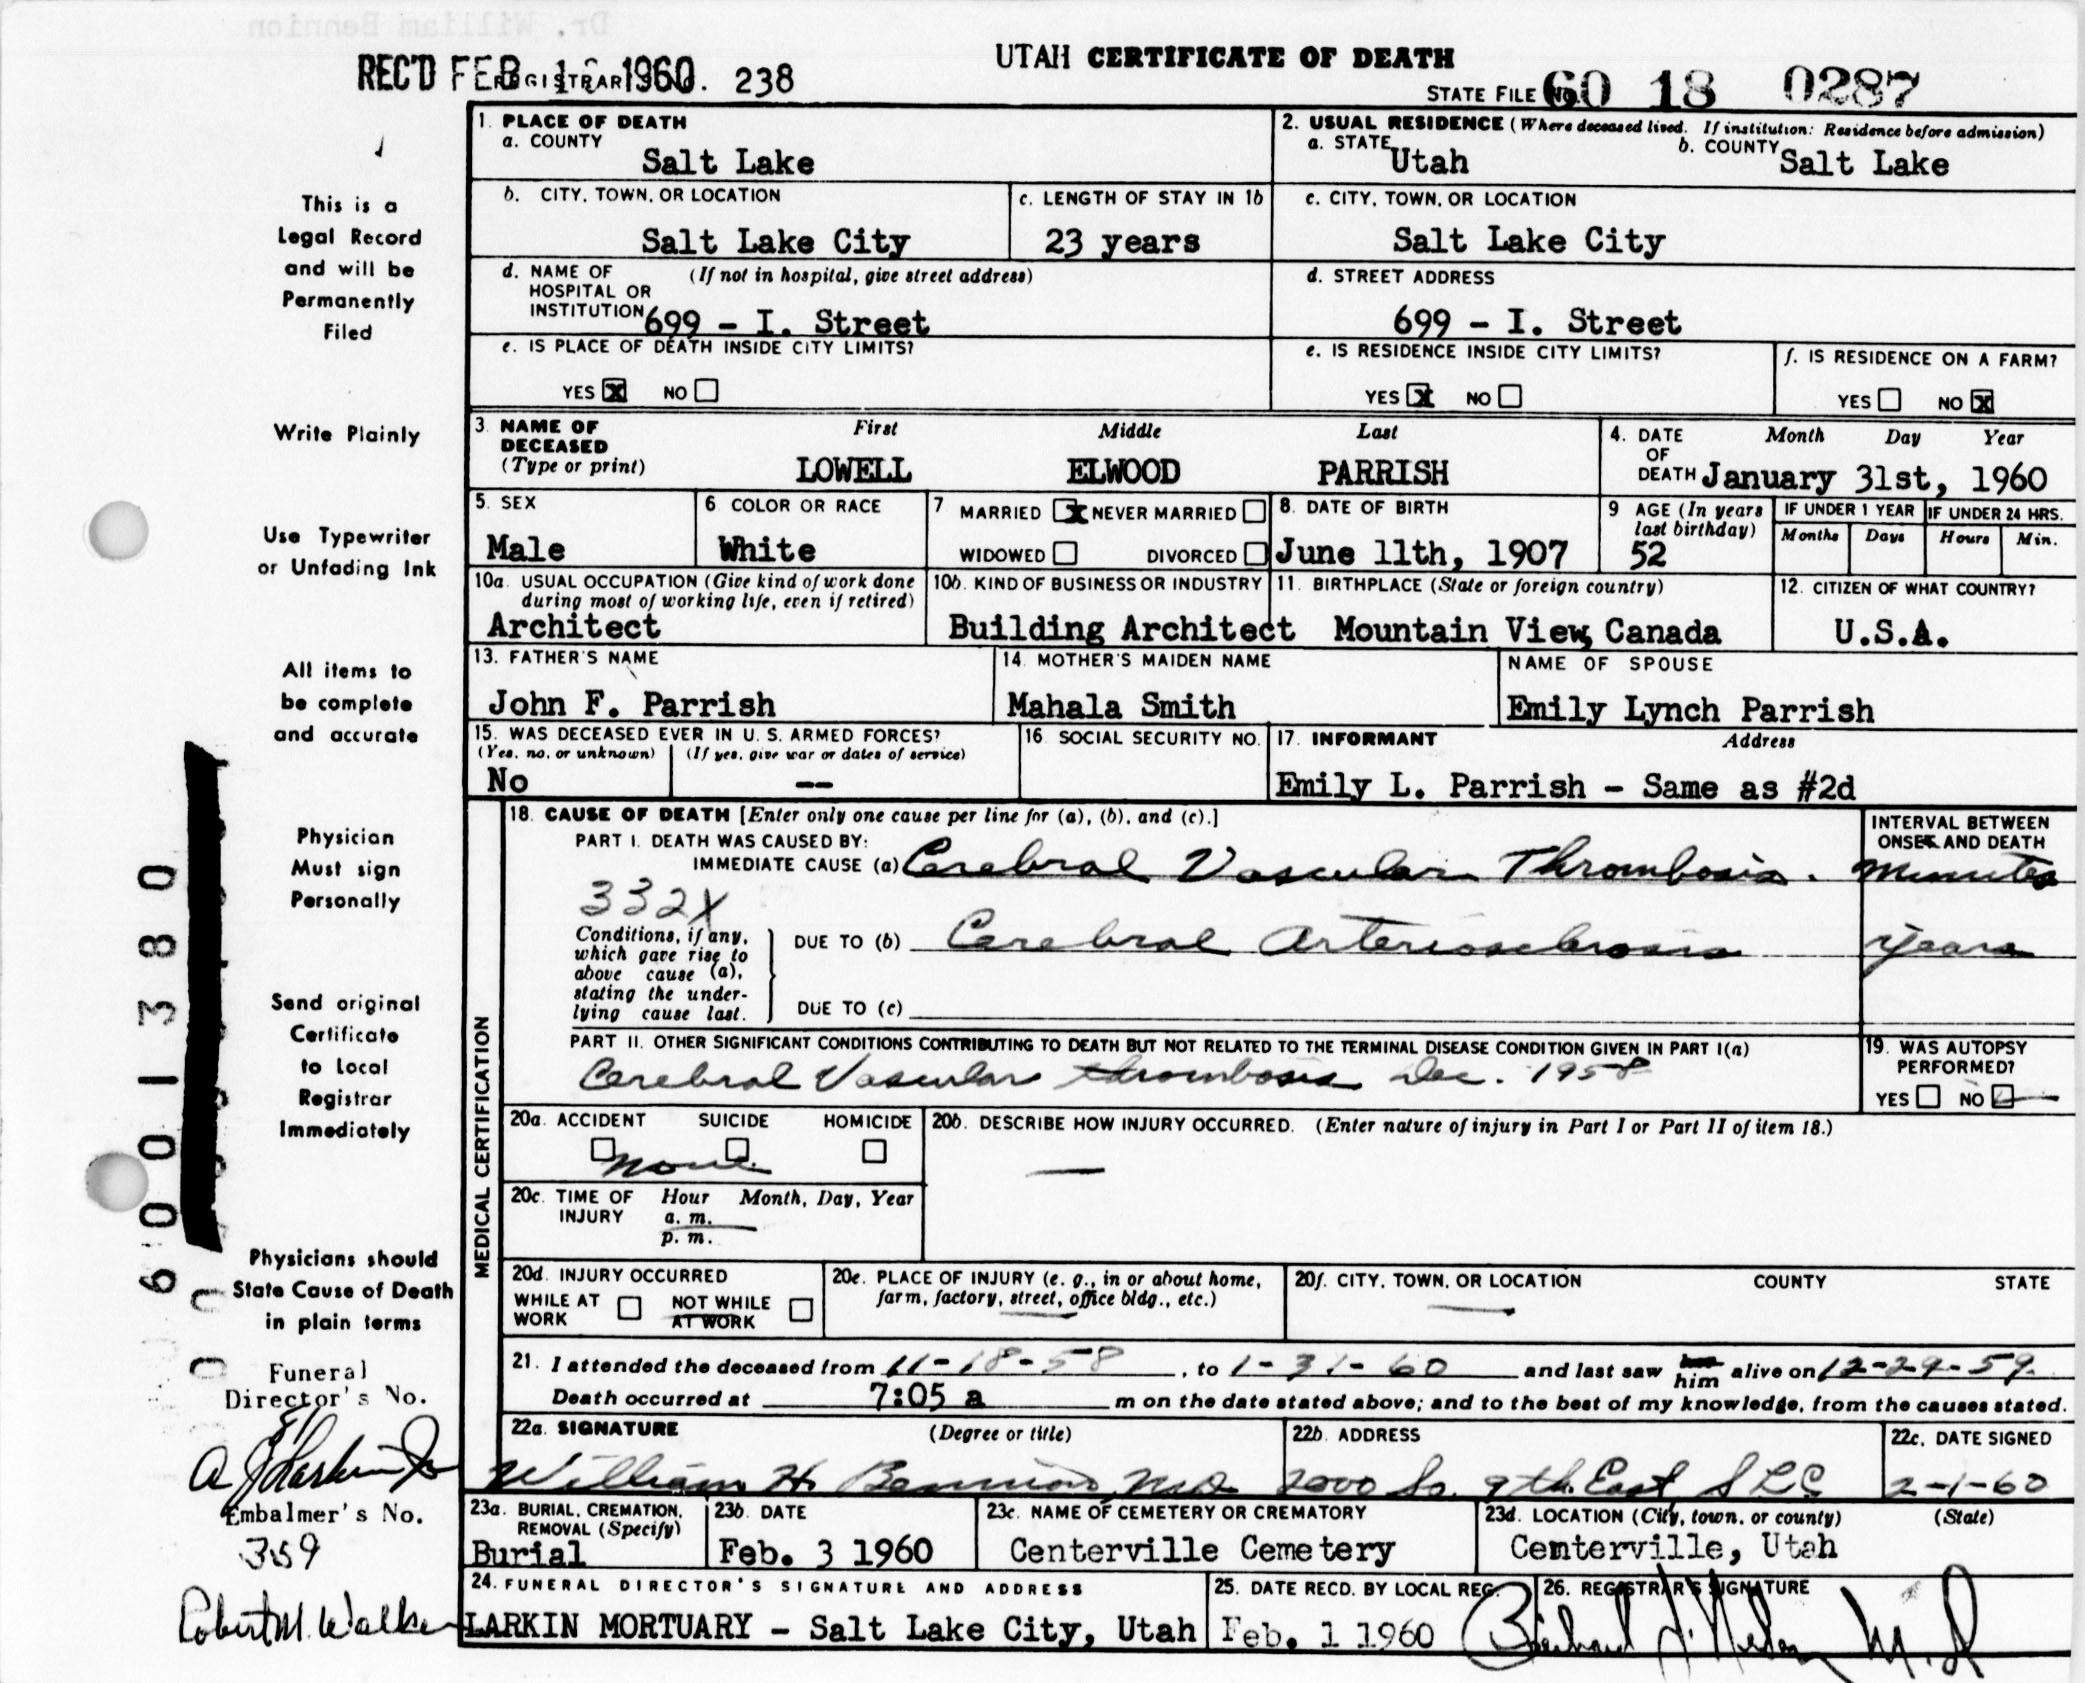 Dr. William Bennion
UTAH CERTIFICATE OF DEATH
REC'D FEB 1960
REGISTRAR'S NO. 238
STATE FILE NO. 60 18 0287
This is a
Legal Record
and will be
Permanently
Filed
Write Plainly
Use Typewriter
or Unfading Ink
All items to
be complete
and accurate
Physician
Must sign
Personally
Send original
Certificate
to Local
Registrar
Immediately
Physicians should
State Cause of Death
in plain terms
Funeral
Director's No.
Embalmer's No.
359
Robert M. Walker
6001380
1. PLACE OF DEATH
a. COUNTY
Salt Lake
2. USUAL RESIDENCE (Where deceased lived. If institution: Residence before admission)
a. STATE Utah b. COUNTY Salt Lake
b. CITY, TOWN, OR LOCATION
Salt Lake City
c. LENGTH OF STAY IN 1b
23 years
c. CITY, TOWN, OR LOCATION
Salt Lake City
d. NAME OF (If not in hospital, give street address)
HOSPITAL OR
INSTITUTION 699 - I. Street
d. STREET ADDRESS
699 - I. Street
e. IS PLACE OF DEATH INSIDE CITY LIMITS?
YES X NO
e. IS RESIDENCE INSIDE CITY LIMITS?
YES X NO
f. IS RESIDENCE ON A FARM?
YES NO X
3. NAME OF DECEASED (Type or print)
First Middle Last
LOWELL ELWOOD PARRISH
4. DATE OF DEATH Month Day Year
January 31st, 1960
5. SEX
Male
6. COLOR OR RACE
White
7 MARRIED X NEVER MARRIED
WIDOWED DIVORCED
8. DATE OF BIRTH
June 11th, 1907
9 AGE (In years last birthday)
52
IF UNDER 1 YEAR
Months Days
IF UNDER 24 HRS.
Hours Min.
10a. USUAL OCCUPATION (Give kind of work done
during most of working life, even if retired)
Architect
10b. KIND OF BUSINESS OR INDUSTRY
Building Architect
11. BIRTHPLACE (State or foreign country)
Mountain View, Canada
12. CITIZEN OF WHAT COUNTRY?
U.S.A.
13. FATHER'S NAME
John F. Parrish
14. MOTHER'S MAIDEN NAME
Mahala Smith
NAME OF SPOUSE
Emily Lynch Parrish
15. WAS DECEASED EVER IN U. S. ARMED FORCES?
(Yes, no, or unknown) (If yes, give war or dates of service)
No --
16. SOCIAL SECURITY NO.
17. INFORMANT Address
Emily L. Parrish - Same as #2d
MEDICAL CERTIFICATION
18. CAUSE OF DEATH [Enter only one cause per line for (a), (b), and (c).]
INTERVAL BETWEEN
ONSET AND DEATH
PART I. DEATH WAS CAUSED BY:
IMMEDIATE CAUSE (a) Cerebral Vascular Thrombosis. Minutes
332X
Conditions, if any,
which gave rise to
above cause (a),
stating the under-
lying cause last.
DUE TO (b) Cerebral Arteriosclerosis years
DUE TO (c)
PART II. OTHER SIGNIFICANT CONDITIONS CONTRIBUTING TO DEATH BUT NOT RELATED TO THE TERMINAL DISEASE CONDITION GIVEN IN PART I(a)
Cerebral Vascular thrombosis Dec. 1958
19. WAS AUTOPSY
PERFORMED?
YES NO
20a. ACCIDENT SUICIDE HOMICIDE
None
20b. DESCRIBE HOW INJURY OCCURRED. (Enter nature of injury in Part I or Part II of item 18.)
20c. TIME OF INJURY Hour Month, Day, Year
a. m.
p. m.
20d. INJURY OCCURRED
WHILE AT WORK NOT WHILE AT WORK
20e. PLACE OF INJURY (e. g., in or about home,
farm, factory, street, office bldg., etc.)
20f. CITY, TOWN, OR LOCATION COUNTY STATE
21. I attended the deceased from 11-18-58, to 1-31-60 and last saw her him alive on 12-29-59.
Death occurred at 7:05 a m on the date stated above; and to the best of my knowledge, from the causes stated.
22a. SIGNATURE (Degree or title)
William H. Bennion, M.D.
22b. ADDRESS
2000 So. 9th East S L C
22c. DATE SIGNED
2-1-60
23a. BURIAL, CREMATION,
REMOVAL (Specify)
Burial
23b. DATE
Feb. 3 1960
23c. NAME OF CEMETERY OR CREMATORY
Centerville Cemetery
23d. LOCATION (City, town, or county) (State)
Centerville, Utah
24. FUNERAL DIRECTOR'S SIGNATURE AND ADDRESS
LARKIN MORTUARY - Salt Lake City, Utah
25. DATE RECD. BY LOCAL REG.
Feb. 1 1960
26. REGISTRAR'S SIGNATURE